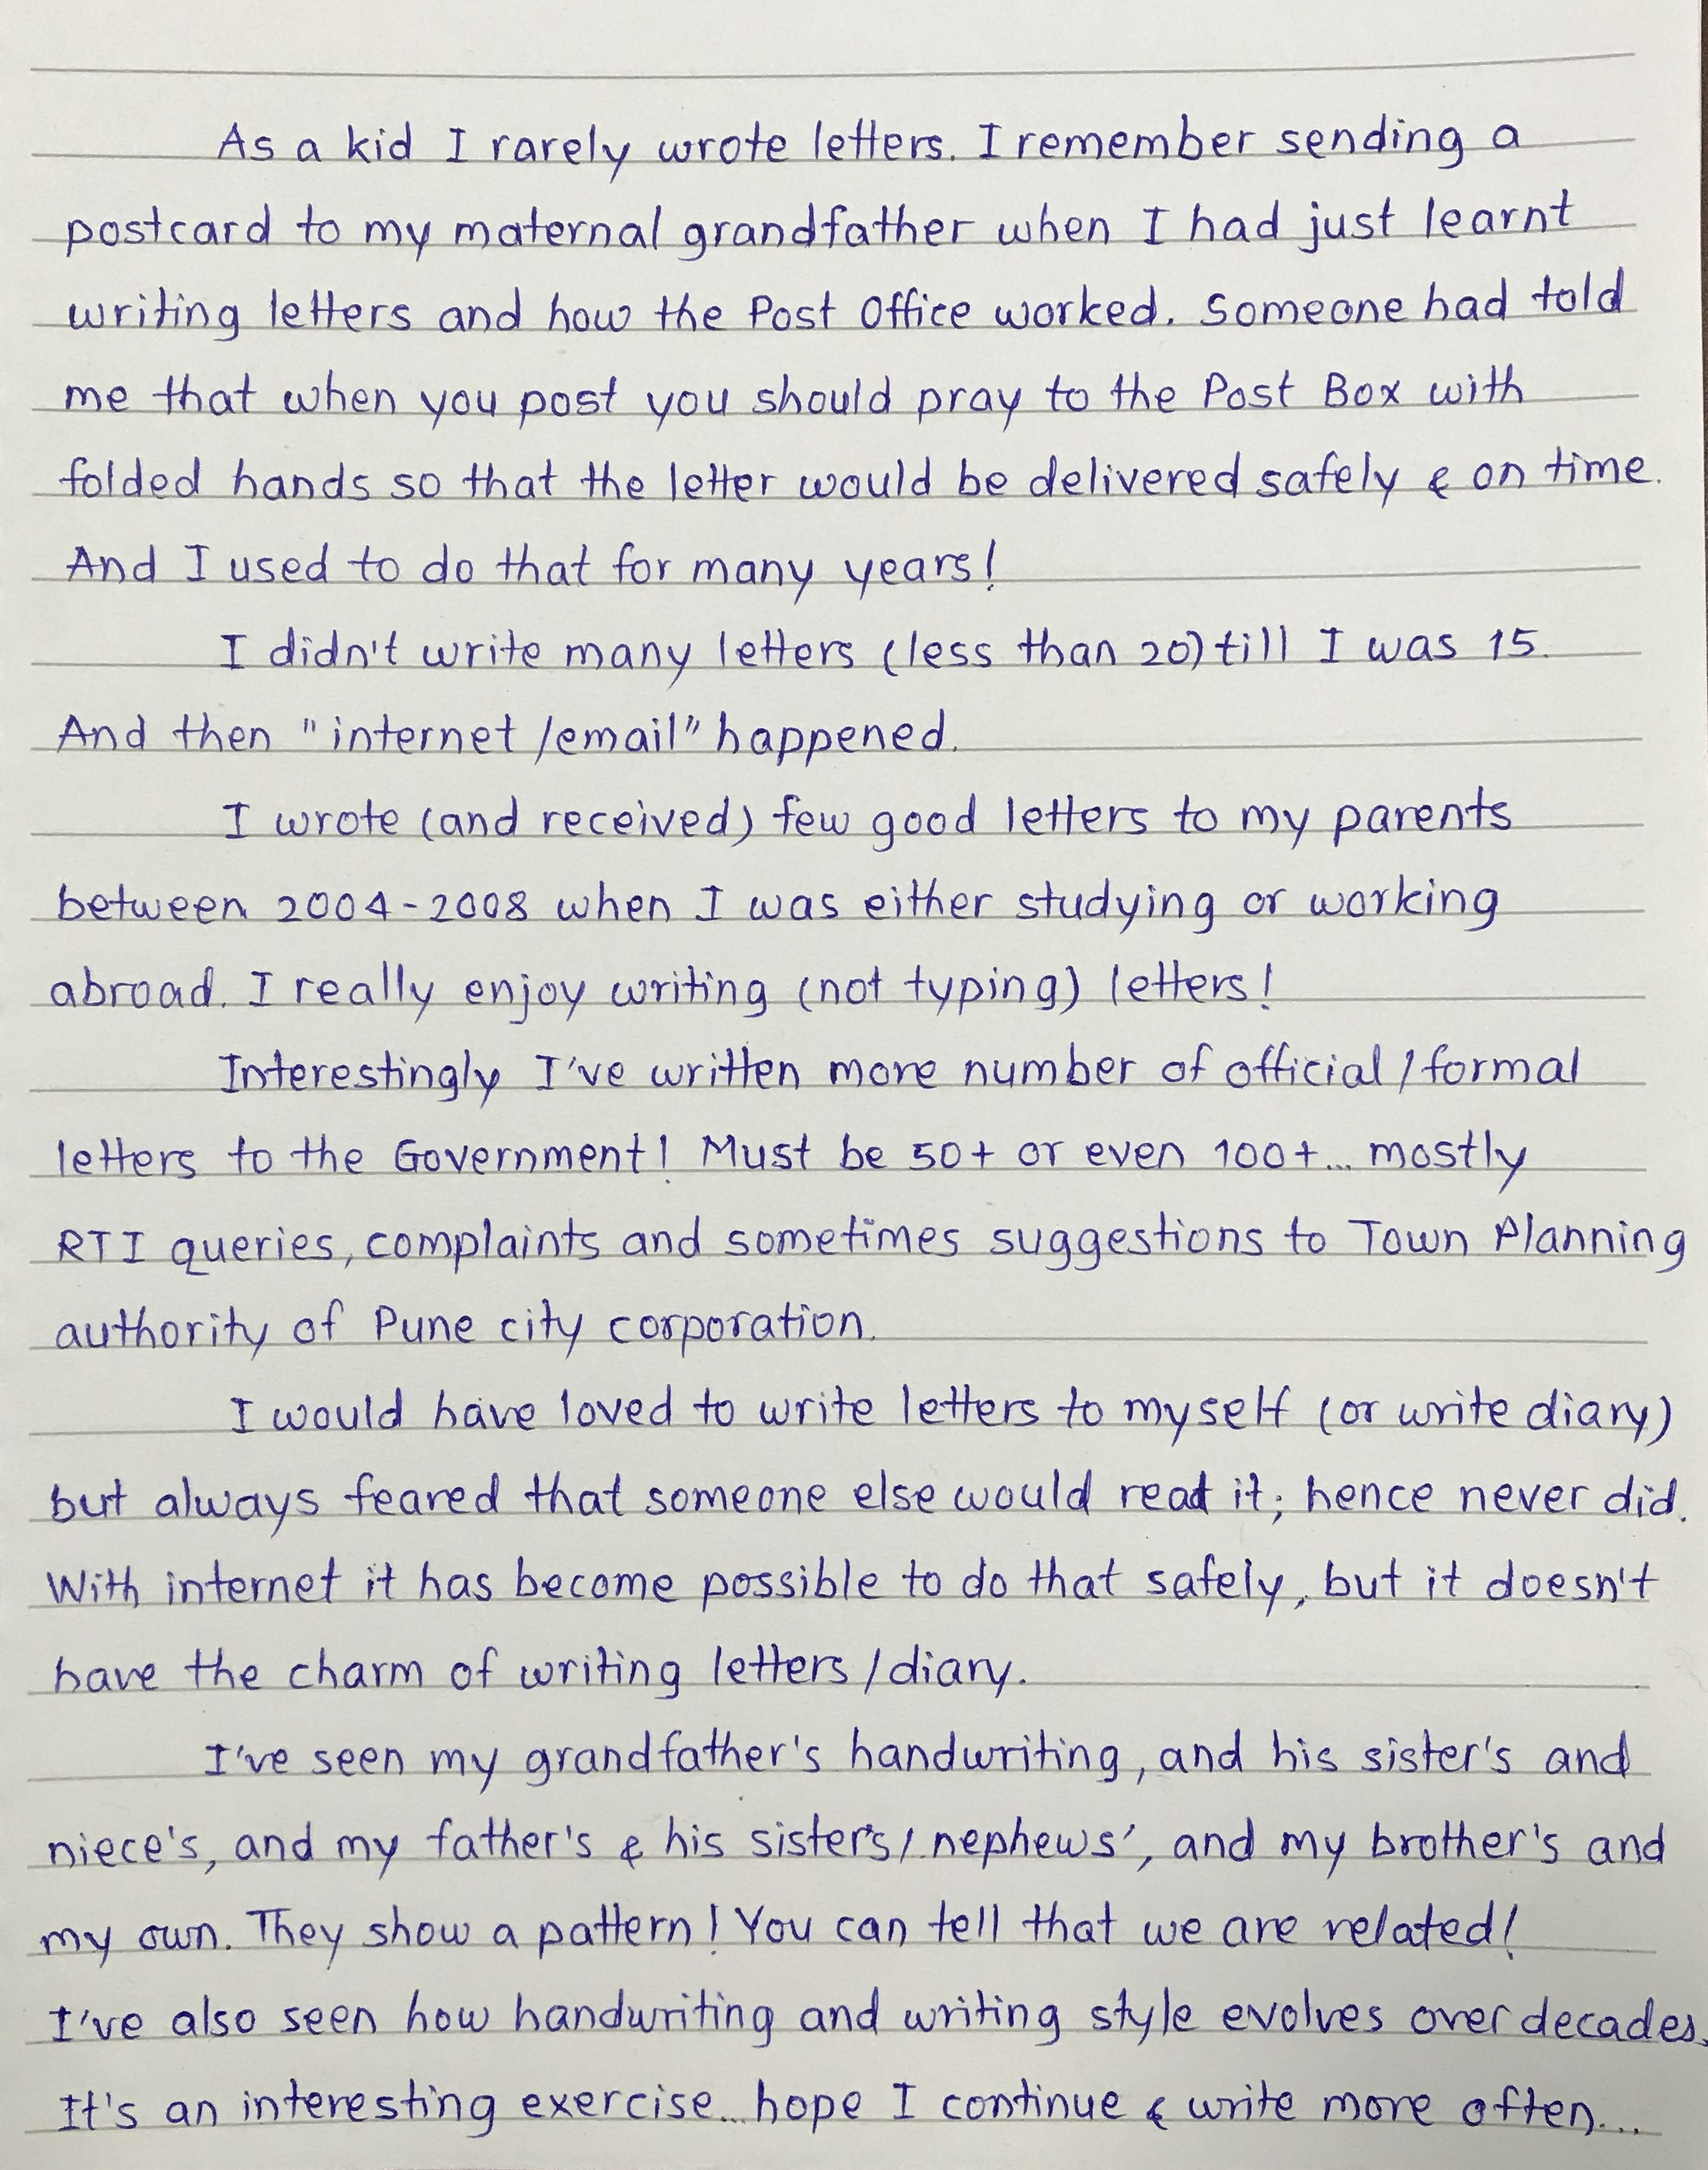 As a kid I rarely wrote letters. I remember sending a
postcard to my maternal grandfather when I had just learnt
writing letters and how the Post Office worked. Someone had told
me that when you post you should pray to the Post Box with
folded hands so that the letter would be delivered safely & on time.
And I used to do that for many years!
I didn't write many letters (less than 20) till I was 15.
And then "internet/email" happened.
I wrote (and received) few good letters to my parents
between 2004-2008 when I was either studying or working
abroad. I really enjoy writing (not typing) letters!
Interestingly I've written more number of official/formal
letters to the Government! Must be 50+ or even 100+... mostly
RTI queries, complaints and sometimes suggestions to Town Planning
authority of Pune city corporation.
I would have loved to write letters to myself (or write diary)
but always feared that someone else would read it; hence never did.
With internet it has become possible to do that safely, but it doesn't
have the charm of writing letters/diary.
I've seen my grandfather's handwriting, and his sister's and
niece's, and my father's & his sister's/nephews', and my brother's and
my own. They show a pattern! You can tell that we are related!
I've also seen how handwriting and writing style evolves over decades.
It's an interesting exercise... hope I continue & write more often...